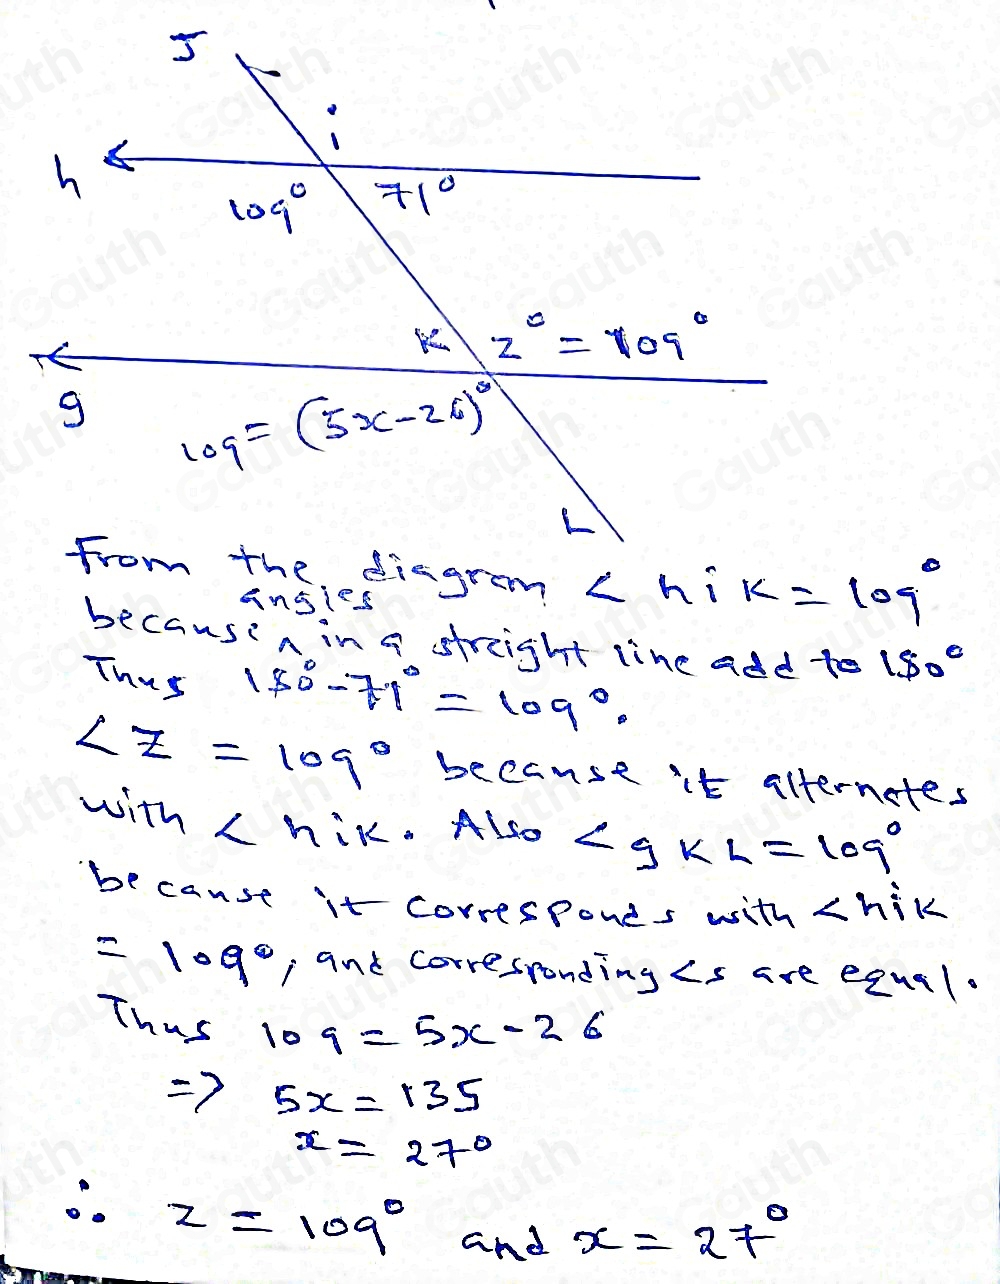 J
i
h
109° 71°
K z° = 109°
g
109 = (5x-26)°
L
From the diagram < hiK = 109°
because angles in a streight line add to 180°
Thus 180° - 71° = 109°.
< Z = 109° because it alternates
with < hiK. Also < gKL = 109°
because it corresponds with < hiK
= 109°, and corresponding <s are equal.
Thus 109 = 5x - 26
=> 5x = 135
x = 27°
∴ z = 109° and x = 27°